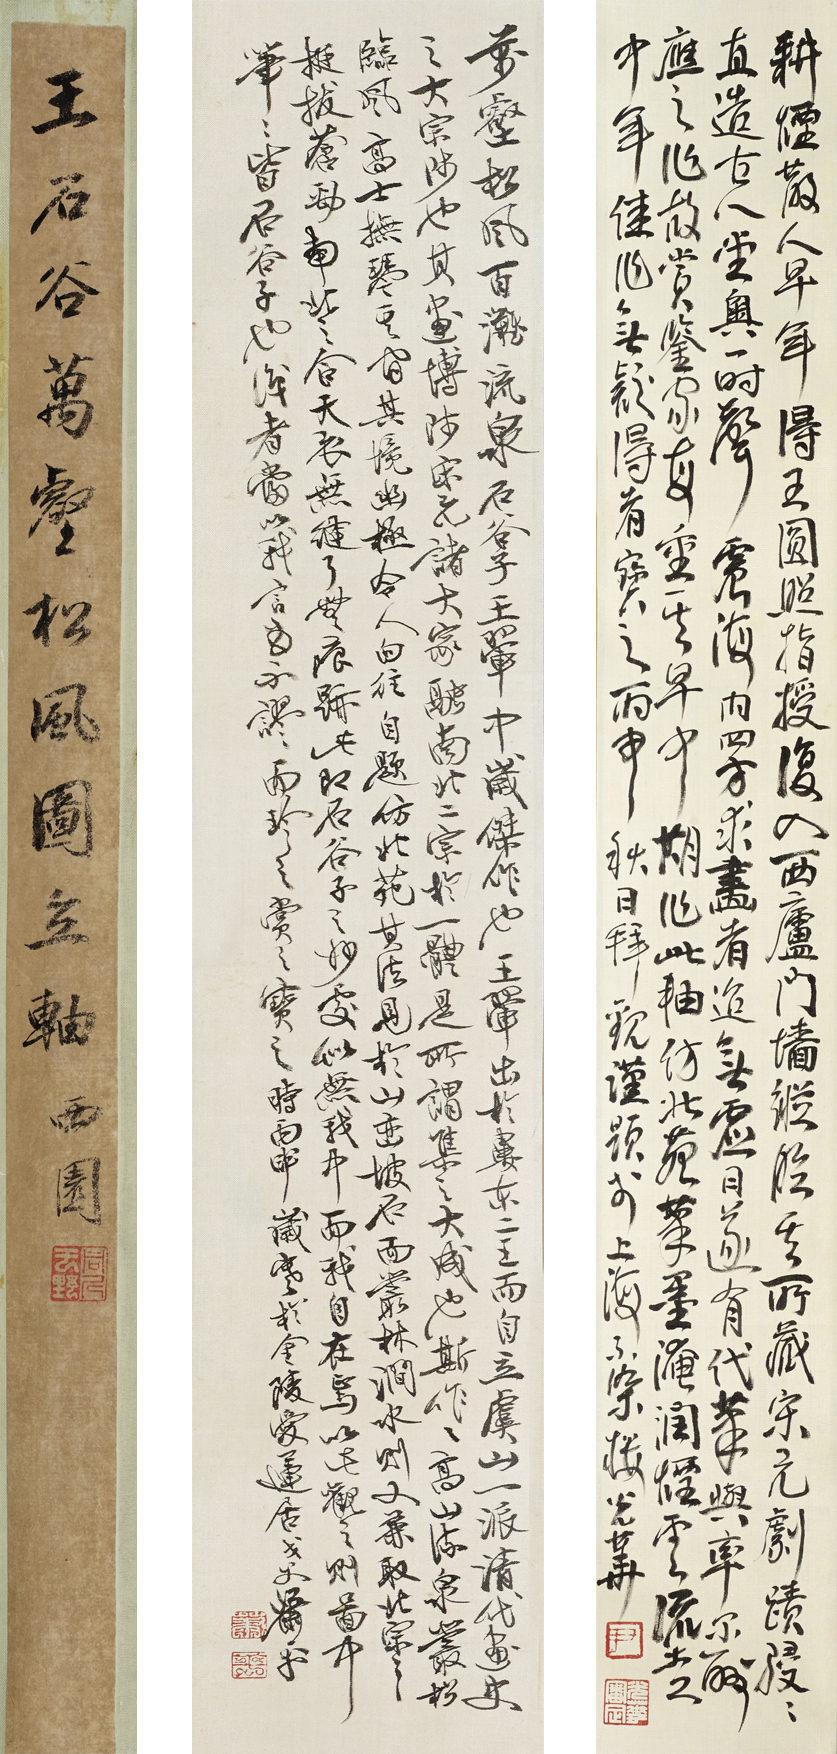 耕煙散人早年得王圓照指授復入西廬門墻縱臨其所藏宋元劇蹟駸駸
直造古人堂奧一時聲震海内四方求畫者迨無虛日遂有代筆與率尔酬
應之作故賞鑒家每重其早中期作此軸仿北苑筆墨淹潤煙雲流走乃
中年佳作無疑得者寶之丙申秋日拜觀謹題於上海不染樓光華
萬壑松風百灘流泉石谷子王翬中歲傑作也王翬出於婁东二王而自立虞山一派清代画史
之大宗师也其画博涉宋元諸大家融南北二宗於一體是所謂集之大成也斯作作高山流泉叢松
臨風高士撫琴其间其境幽極令人向往自題仿北苑其法見於山巒坡石而叢林澗水則又兼取北宗之
挺拔蒼勁南北之合天衣無縫了無痕跡此即石谷子之妙處似無我中而我自在焉以此觀之則畐中
筆筆皆石谷子也识者當以我言为不謬而珍之賞之寶之時丙申歲寒於金陵愛蓮居戈父蕭平
王石谷萬壑松風圖立軸 西園